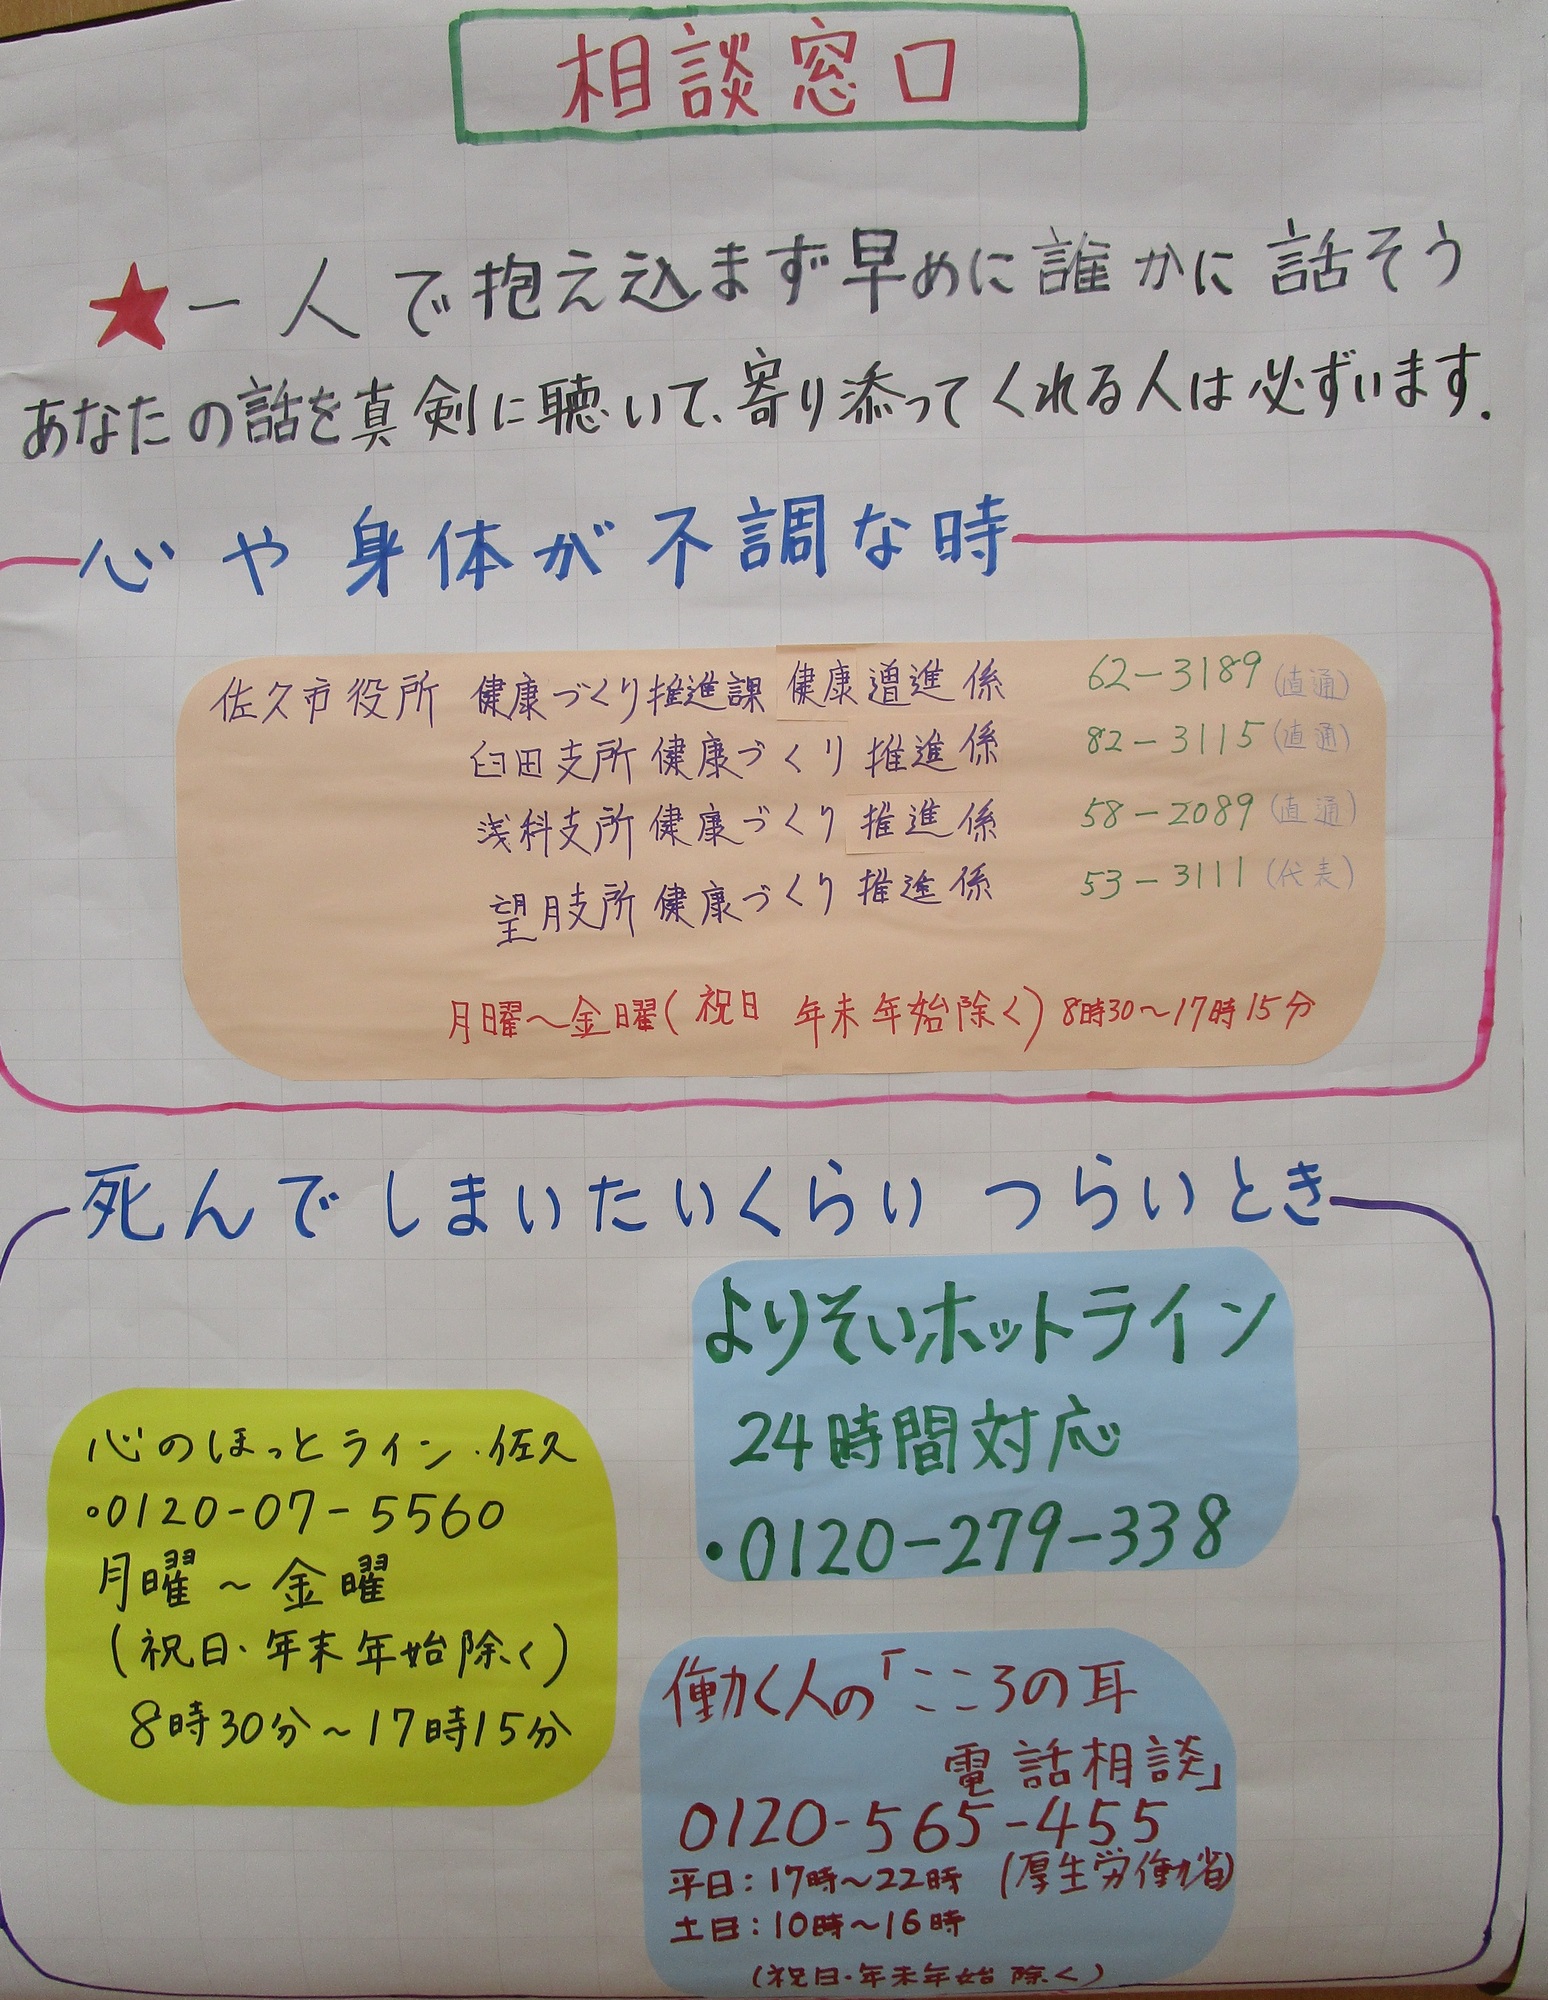 相談窓口
★一人で抱え込まず早めに誰かに話そう
あなたの話を真剣に聴いて、寄り添ってくれる人は必ずいます.
心や身体が不調な時
佐久市役所 健康づくり推進課 健康増進係 62-3189(直通)
臼田支所健康づくり推進係 82-3115(直通)
浅科支所健康づくり推進係 58-2089(直通)
望月支所健康づくり推進係 53-3111(代表)
月曜~金曜(祝日 年末年始除く)8時30~17時15分
死んでしまいたいくらい つらいとき
よりそいホットライン
24時間対応
•0120-279-338
心のほっとライン・佐久
•0120-07-5560
月曜~金曜
(祝日・年末年始除く)
8時30分~17時15分
働く人の「こころの耳
電話相談」
0120-565-455
(厚生労働省)
平日:17時~22時
土日:10時~16時
(祝日・年末年始 除く)